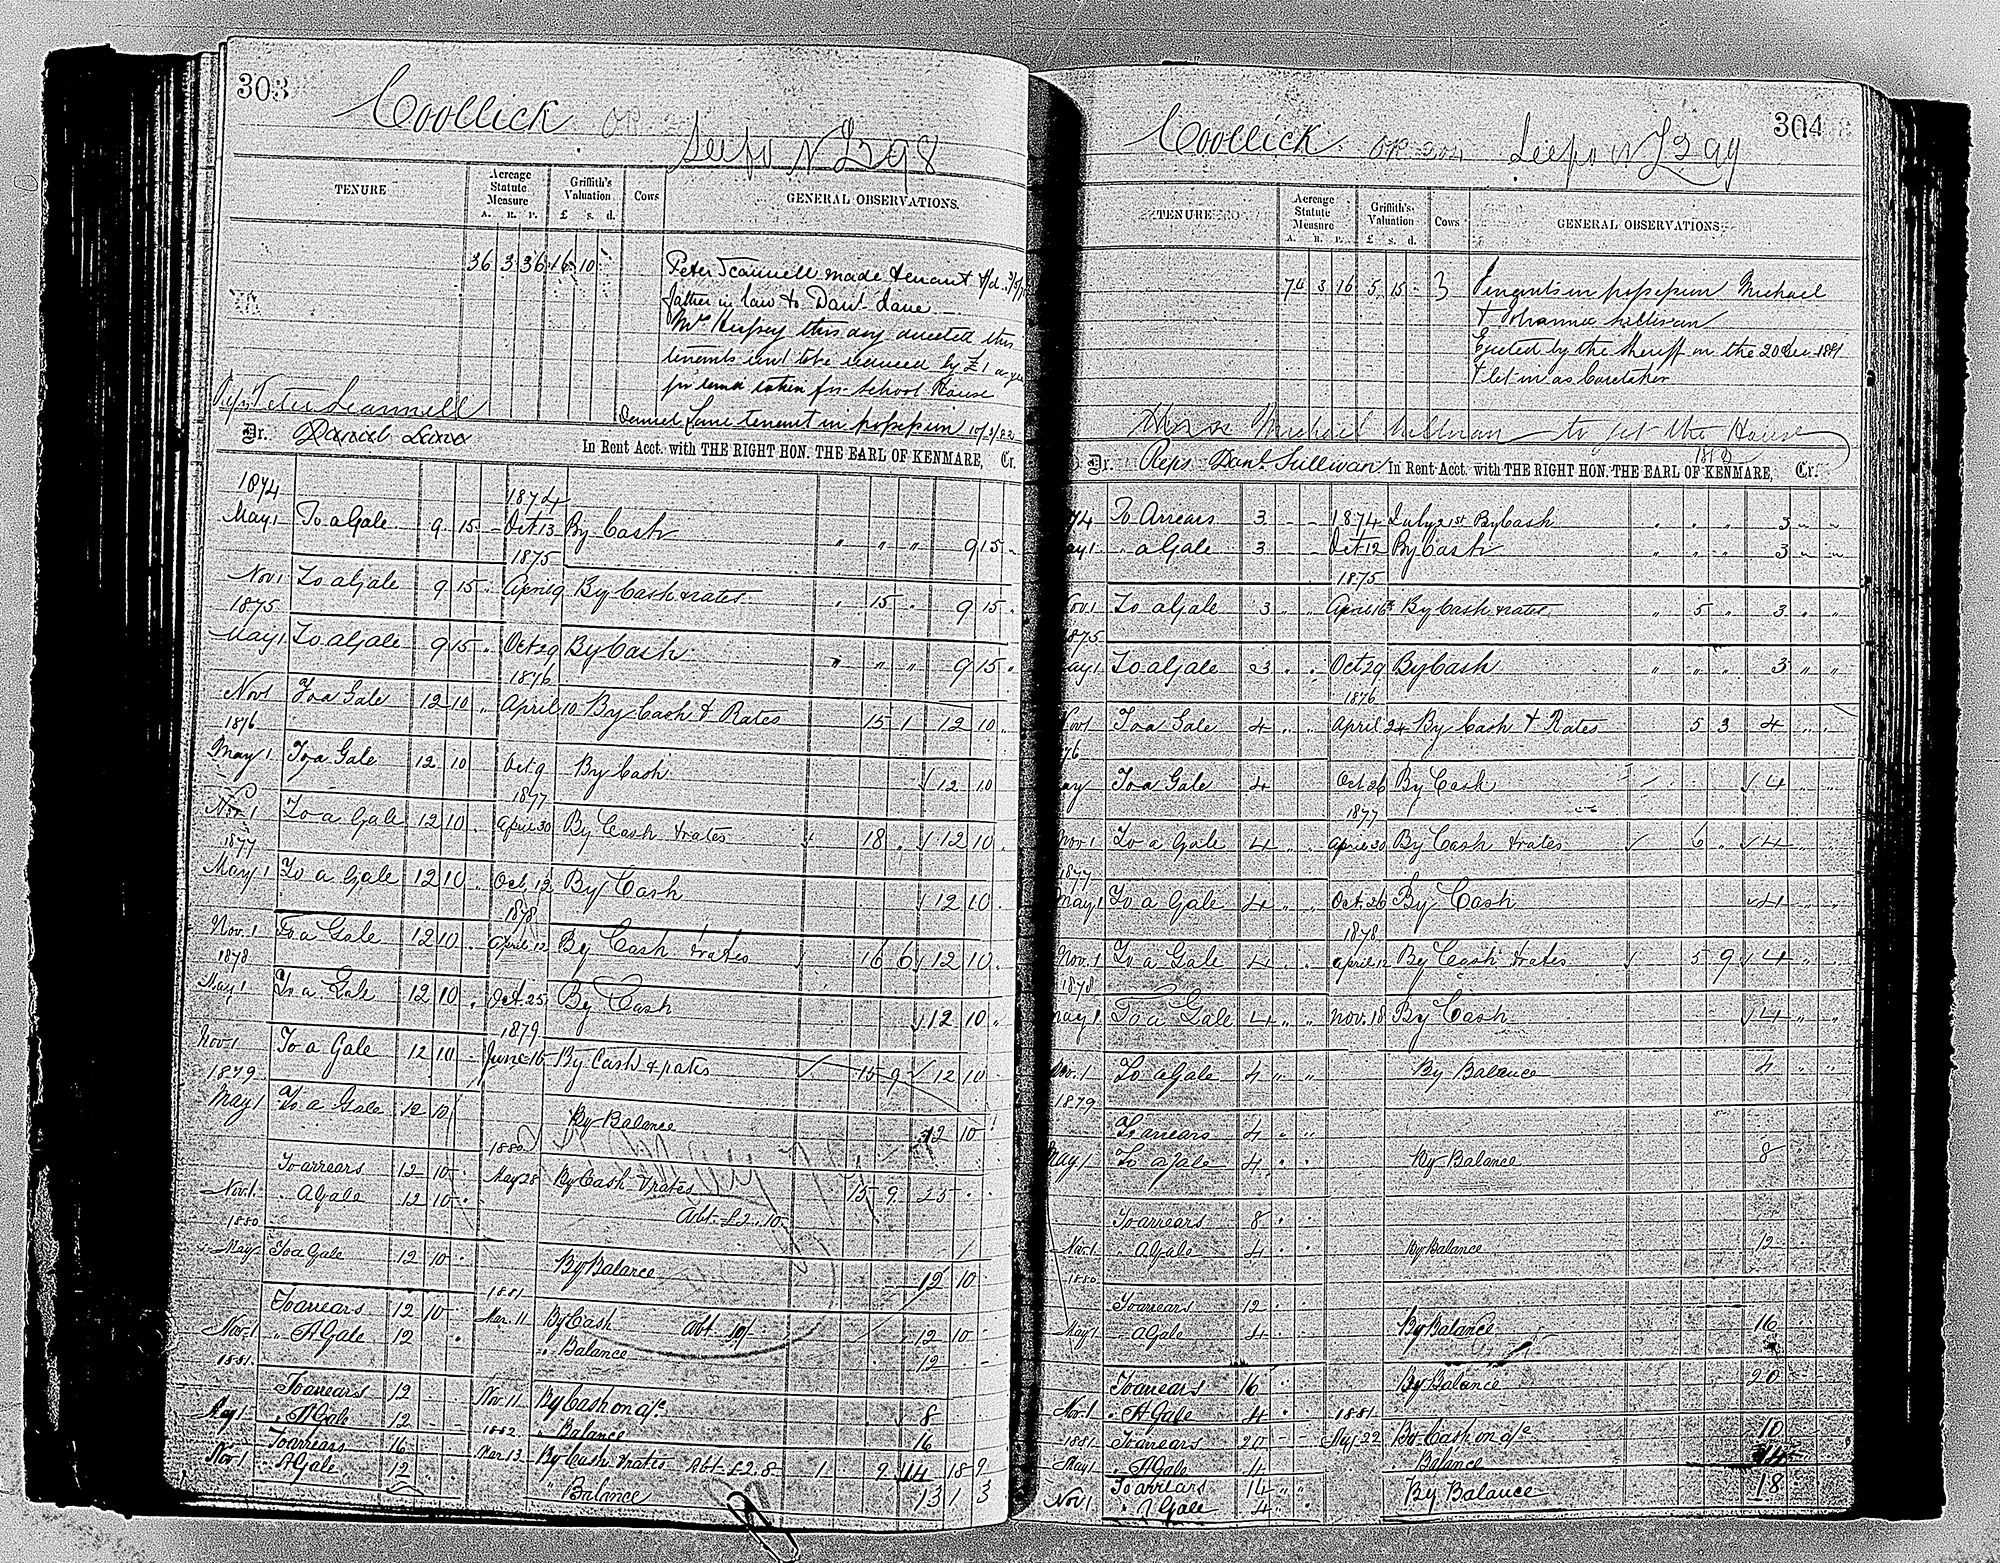 303
Coollick
See fo N L 298
TENURE
Acreage Statute Measure
A. R. P.
Griffith's Valuation
£ s. d.
Cows
GENERAL OBSERVATIONS.
36 3 36 16 10
Peter Scannell made tenant
father in law to Danl Lane
Mr Hussey this day directed this
tenants rent to be reduced by £1 a year
for land taken for School House
Daniel Lane tenant in possession 10/3/82
Reps Peter Scannell
Dr. Daniel Lane In Rent Acct. with THE RIGHT HON. THE EARL OF KENMARE, Cr.
1874 1874
May 1 To a Gale 9 15 - Oct 13 By Cash " " " 9 15 "
1875
Nov 1 To a Gale 9 15 " April 9 By Cash & rates " 15 " 9 15 "
1875
May 1 To a Gale 9 15 " Oct 29 By Cash " " " 9 15 "
1876
Nov 1 To a Gale 12 10 " April 10 By Cash & Rates 15 1 12 10 "
1876
May 1 To a Gale 12 10 Oct 9 By Cash 12 10
1877
Nov 1 To a Gale 12 10 " April 30 By Cash & rates 18 " 12 10 "
1877
May 1 To a Gale 12 10 " Oct. 12 By Cash 12 10 "
1878
Nov. 1 To a Gale 12 10 " April 12 By Cash & rates 16 6 12 10 "
1878
May 1 To a Gale 12 10 " Oct. 25 By Cash 12 10 "
1879
Nov. 1 To a Gale 12 10 - June 16 By Cash & rates 15 9 12 10
1879
May 1 To a Gale 12 10 By Balance 12 10
1880
To arrears 12 10 May 28 By Cash & rates 15 9 25 " "
Nov. 1 " A Gale 12 10 " Abt. £2.10
1880
May To a Gale 12 10 " By Balance 12 10
1881
To arrears 12 10 Mar. 11 By Cash Abt 10/ 12 10 -
Nov. 1 " A Gale 12 " " Balance 12 - -
1881
To arrears 12 Nov. 11 By Cash on a/c 8
May 1 " A Gale 12 - - 1882 " Balance 16
To arrears 16 Mar 13 By Cash & rates Abt £2.8 1 9 14 18 9
Nov 1 " A Gale 12 " Balance 13 1 3
304
Coollick
See fo N L 299
TENURE
Acreage Statute Measure
A. R. P.
Griffith's Valuation
£ s. d.
Cows
GENERAL OBSERVATIONS
74 3 16 5 15 - 3
Tenants in possession Michael
& Johanna Sullivan
Ejected by the Sheriff on the 20 Dec. 1881
& let in as Caretaker
Michael Sullivan to get the House
Dr. Reps Danl. Sullivan In Rent Acct. with THE RIGHT HON. THE EARL OF KENMARE, Cr.
74 To Arrears 3 - - 1874 July 21st By Cash " " " 3 " "
May 1 " a Gale 3 - Oct 12 By Cash " " " 3 " "
1875
Nov 1 To a Gale 3 " " April 16 By Cash & rates " 5 " 3 " "
1875
May 1 To a Gale 3 " " Oct 29 By Cash " " " 3 " "
1876
Nov 1 To a Gale 4 " " April 24 By Cash & Rates 5 3 4 " "
76
May To a Gale 4 Oct 26 By Cash 4 " "
1877
Nov. 1 To a Gale 4 " " April 30 By Cash & rates 6 " 4 " "
1877
May 1 To a Gale 4 " " Oct. 26 By Cash 4 " "
1878
Nov. 1 To a Gale 4 " " April 12 By Cash & rates 5 9 4 " "
1878
May 1 To a Gale 4 " " Nov. 18 By Cash 4 " "
Nov. 1 To a Gale 4 " " By Balance 4 " "
1879
To arrears 4 " "
May 1 To a Gale 4 " " By Balance 8
To arrears 8 " "
Nov. 1 " A Gale 4 " " By Balance 12 "
1880
To arrears 12 " "
May 1 " A Gale 4 " " By Balance 16
To arrears 16 " " By Balance 20
Nov. 1 " A Gale 4 " " 1881
1881 To arrears 20 - - May 22 By Cash on a/c 10
May 1 " A Gale 4 " Balance 14
To arrears 14 " " By Balance 18
Nov 1 " A Gale 4 "